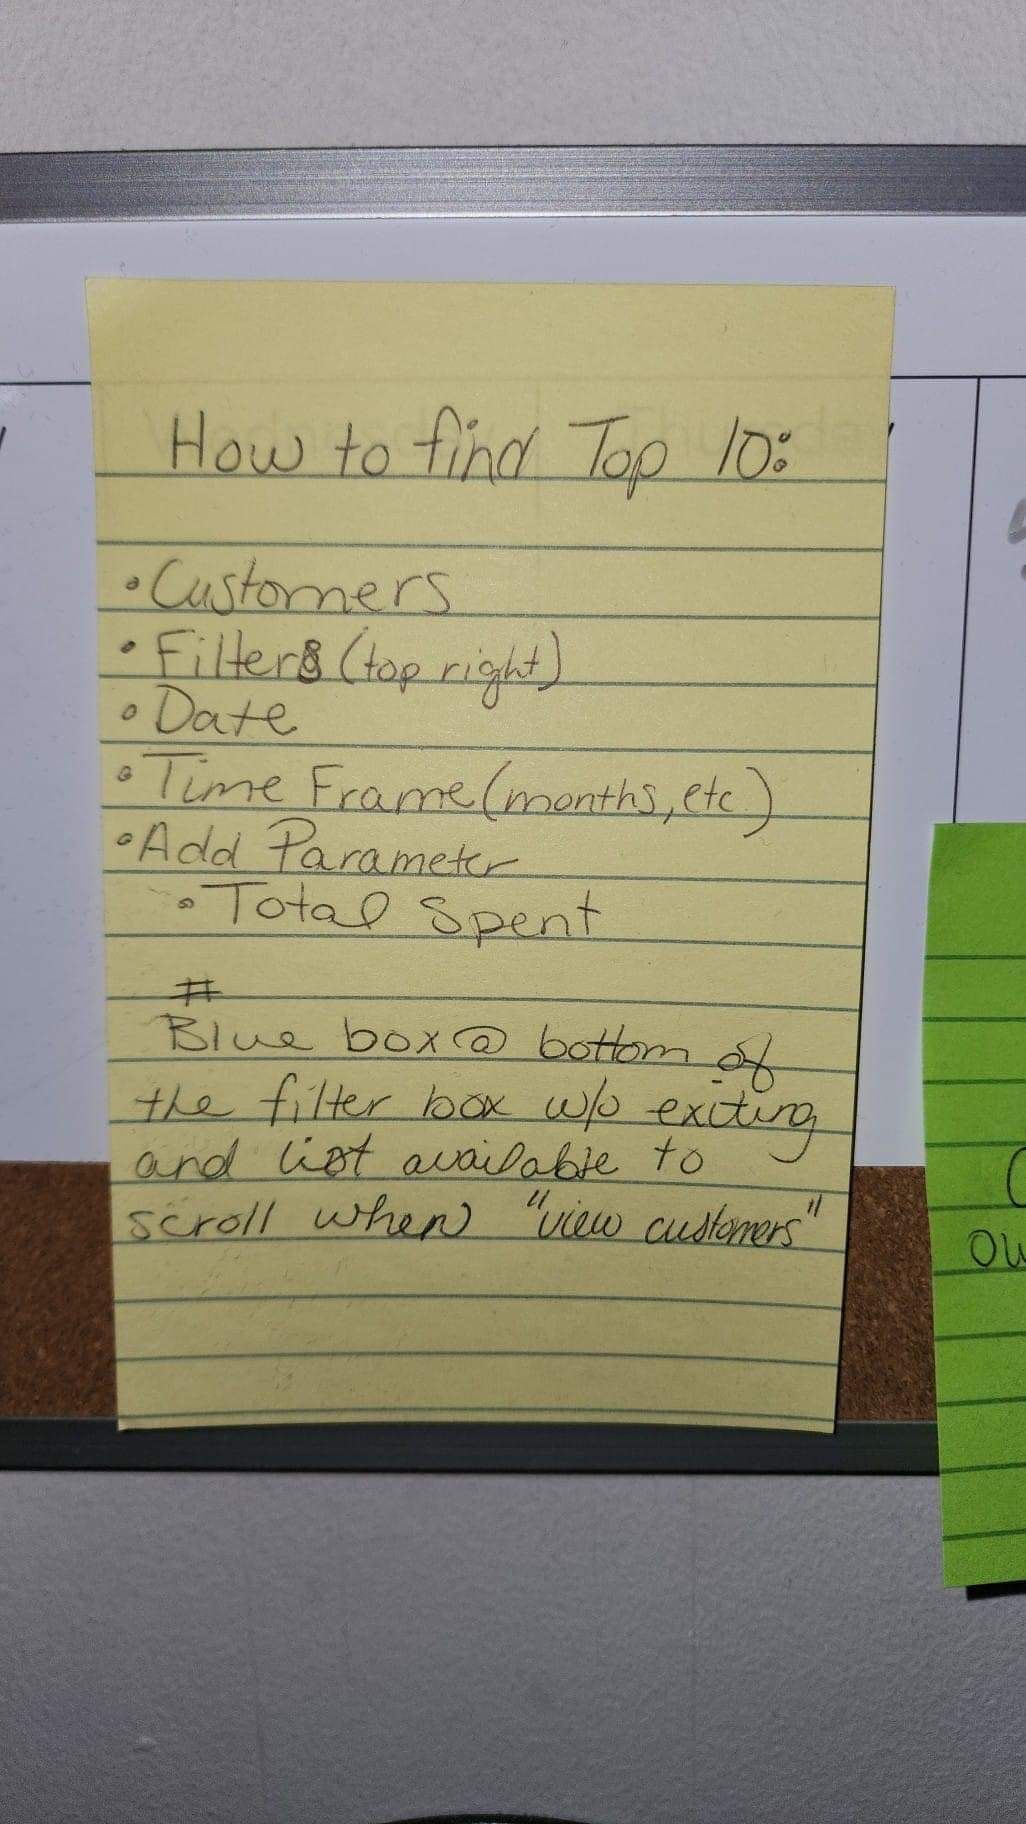 How to find Top 10:
• Customers
• Filters (top right)
• Date
• Time Frame (months, etc)
• Add Parameter
• Total Spent
#
Blue box @ bottom of
the filter box w/o exiting
and list available to
scroll when "view customers"